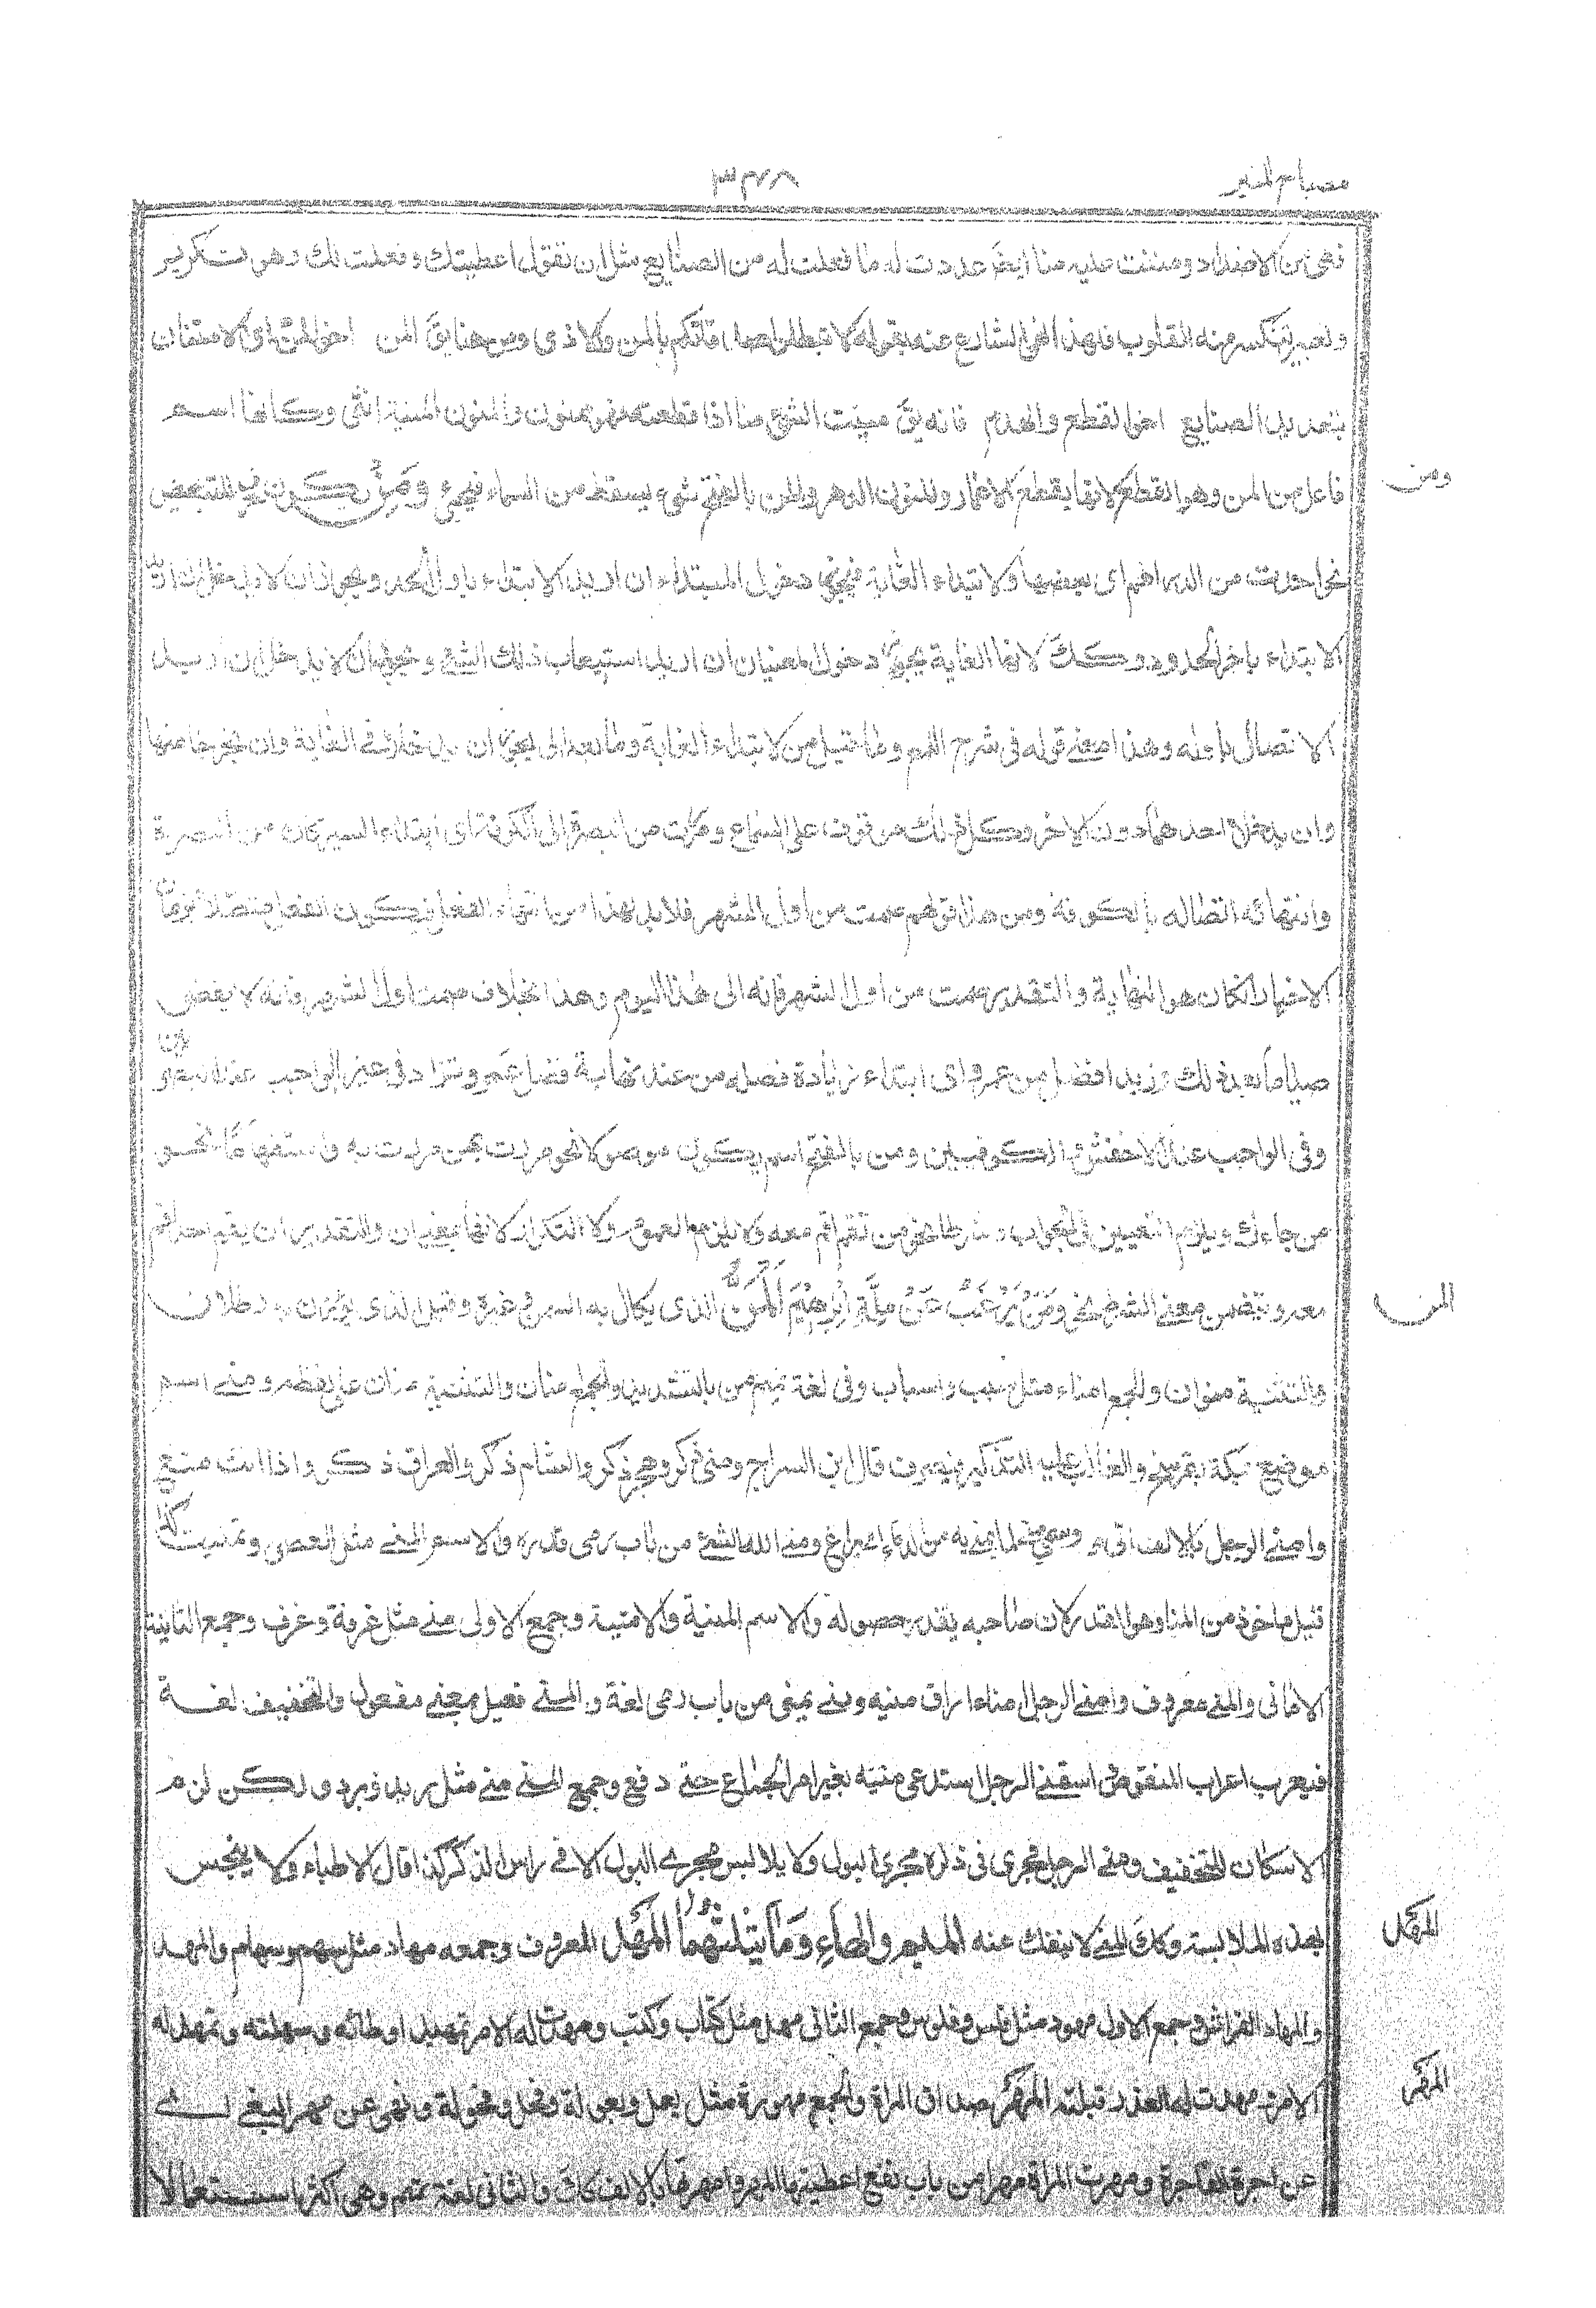 مصباح المنير
٣٤٨
فهى من الاضداد ومننت عليه منا ايضا عددت له ما فعلت له من الصنايع مثل ان تقول اعطيتك وفعلت لك وهو تكرير
وتعيير تنكسر منه القلوب فلهذا نهى الشارع عنه بقوله لا تبطلوا صدقاتكم بالمن والاذى ومن هنا يق المن اخو المن اى الامتنان
بتعديد الصنايع اخو القطع والهدم فانه يق مننت الشئ منا اذا قطعته فهو ممنون والمنون المنية انثى وكانها اسم
فاعل من المن وهو القطع لانها يقطع الاعمار والمنون الدهر والمن بالفتح شىء يسقط من السماء فيجنى ومن يكون للتبعيض
ومن
نحو اخذت من الدراهم اى بعضها ولابتداء الغاية فيجوز دخول المبتداء ان اريد الابتداء باول الحد ويجوز ان لا يدخل ان اريد
الابتداء باخر الحد وكك لانتهاء الغاية يجوز دخول المغيا ان اريد استيعاب ذلك الشئ ويجوز ان لا يدخل ان اريد
الاتصال باوله وهذا معنى قوله فى شرح وما قيل من لابتداء الغاية وما بعد الى يجوز ان يدخلا فى الغاية وان يخرجا منها
وان يدخل احدهما دون الاخر وكل ذلك موقوف على السماع وسرت من البصرة الى الكوفة اى ابتداء السير كان من البصرة
وانتهائه اتصاله بالكوفة ومن هذا قولهم صمت من اول الشهر فلابد لهذا من انتهاء الفعل فيكون الفعل متصلا بزمان
الاخبار ان كان هو النهاية والتقدير صمت من اول الشهر فانه الى هذا اليوم وهذا بخلاف صمت اول الشهر فانه لا يقتضى
صياما بعد ذلك وزيد افضل من عمرو اى ابتداء زيادة فضله من عند نهاية فضل عمرو وتزاد فى غير الواجب عند البصريين
وفى الواجب عند الاخفش والكوفيين ومن بالفتح اسم يكون موصولا نحو مررت بمن مررت به واستفهاما نحو
من جاءك ويلزم التعيين فى الجواب وشرطا نحو من تقم اقم معه ولا يلزم العموم ولا التكرار لانها بمعنى ان والتقدير ان يقم احد اقم
معه وتتضمن معنى النفى نحو ومن يرغب عن ملة ابراهيم المن الذى يكال به السمن وغيره وقيل الذى يوزن به رطلان
المن
والتثنية منوان والجمع امناء مثل سبب واسباب وفى لغة تميم من بالتشديد والجمع امنان والتثنية منان على لفظه ومنى اسم
موضع بمكة والغالب عليه التذكير فيصرف قال ابن السراج ومنى ذكر وهجر ذكر والشام ذكر والعراق ذكر واذا انث منع
وامنى الرجل بالالف اتى منى وسمى منى لما يمنى به من الدماء اى يراق ومنى الله الشئ من باب رمى قدره والاسم المنى مثل العصى وتمنيت كذا
قيل ماخوذ من المنا وهو القدر لان صاحبه يقدر حصوله والاسم المنية والامنية وجمع الاولى منى مثل غرفة وغرف وجمع الثانية
الامانى والمنى معروف وامنى الرجل امناء اراق منيه ومنى يمنى من باب رمى لغة والمنى فعيل بمعنى مفعول والتخفيف لغة
فيعرب اعراب المنقوص استمنى الرجل استدعى منيه بغير امر الجماع حتى دفع وجمع المنى منى مثل بريد وبرد ولكن لزم
الاسكان للتخفيف ومنى الرجل مجرى فى ذكره مجرى البول ولا يلابس مجرى البول الا فى راس الذكر كذا قال الاطباء ولا ينجس
لهذه الملابسة وكك المنى لا ينفك عنه الميم والهاء وما يثلثهما المهد المعروف وجمعه مهاد مثل سهم وسهام والمهد
المهد
والمهاد الفراش وجمع الاول مهود مثل فلس وفلوس وجمع الثانى مهد مثل كتاب وكتب ومهدت له الامر تمهيدا وطاته وسهلته وتمهد له
الامر ومهدت له العذر قبلته المهر صداق المراة والجمع مهورة مثل بعل وبعولة وفحل وفحولة ونهى عن مهر البغى اى
المهر
عن اجرة الفاجرة ومهرت المراة مهرا من باب نفع اعطيتها المهر وامهرتها بالالف كذلك والثانى لغة تميم وهى اكثر استعمالا